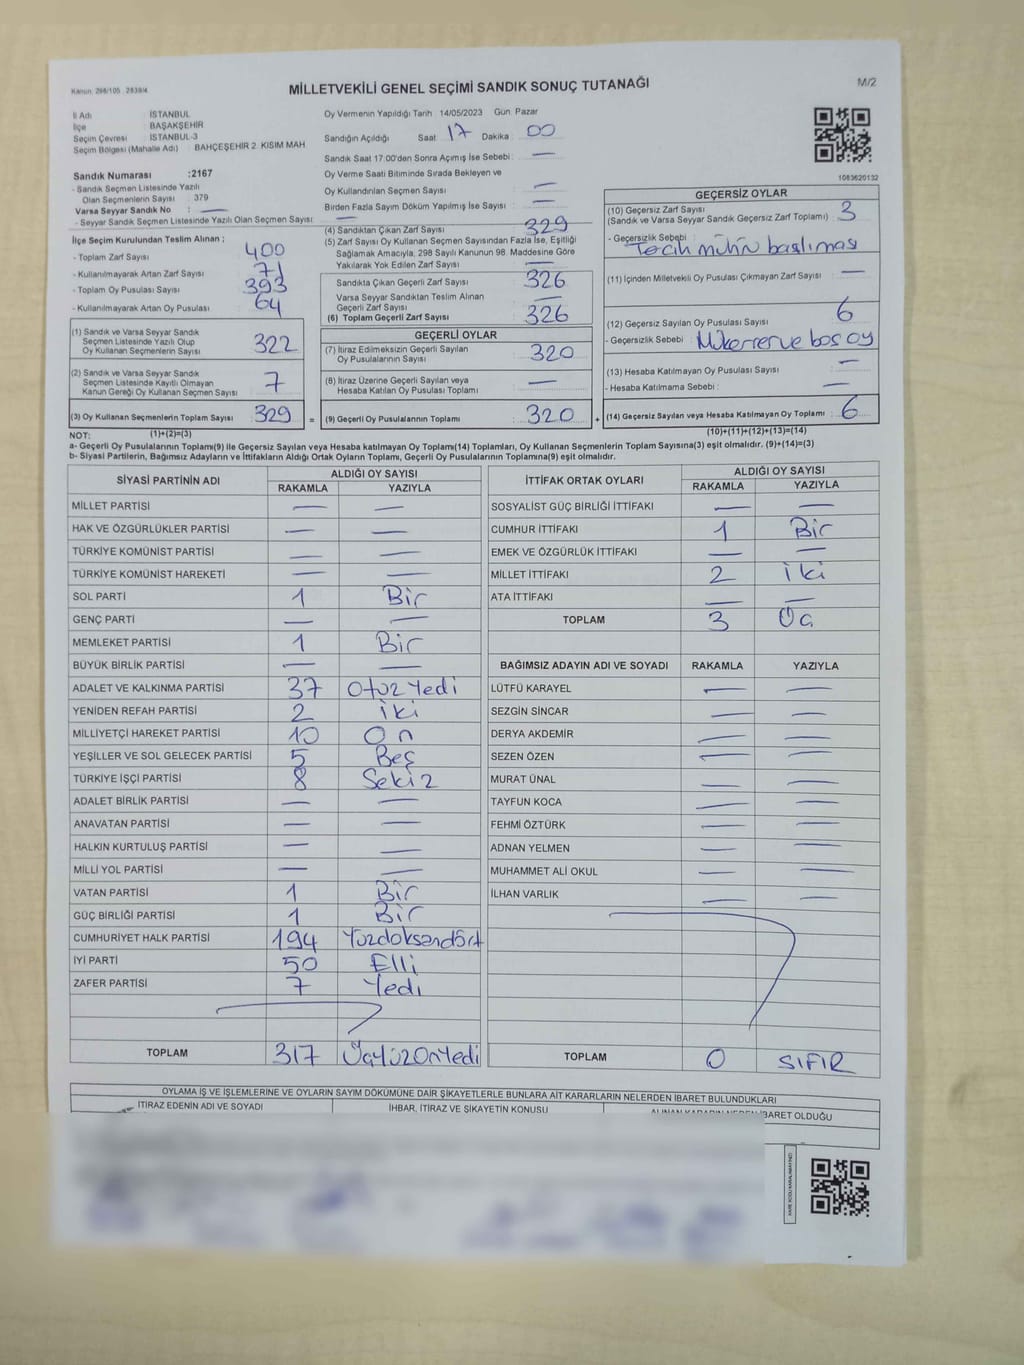 Kanun: 298/105 , 2839/4
MİLLETVEKİLİ GENEL SEÇİMİ SANDIK SONUÇ TUTANAĞI
M/2
İl Adı : İSTANBUL
İlçe : BAŞAKŞEHİR
Seçim Çevresi : İSTANBUL-3
Seçim Bölgesi (Mahalle Adı) : BAHÇEŞEHİR 2. KISIM MAH
Oy Vermenin Yapıldığı Tarih : 14/05/2023 Gün: Pazar
Sandığın Açıldığı Saat : 17 Dakika : 00
Sandık Saat 17:00'den Sonra Açımış İse Sebebi : —
Oy Verme Saati Bitiminde Sırada Bekleyen ve
Oy Kullandırılan Seçmen Sayısı : —
Birden Fazla Sayım Döküm Yapılmış İse Sayısı : —
1083620132
Sandık Numarası :2167
- Sandık Seçmen Listesinde Yazılı
Olan Seçmenlerin Sayısı : 379
Varsa Seyyar Sandık No : —
- Seyyar Sandık Seçmen Listesinde Yazılı Olan Seçmen Sayısı : —
İlçe Seçim Kurulundan Teslim Alınan ;
- Toplam Zarf Sayısı : 400
- Kullanılmayarak Artan Zarf Sayısı : 71
- Toplam Oy Pusulası Sayısı : 393
- Kullanılmayarak Artan Oy Pusulası : 64
(1) Sandık ve Varsa Seyyar Sandık
Seçmen Listesinde Yazılı Olup
Oy Kullanan Seçmenlerin Sayısı : 322
(2) Sandık ve Varsa Seyyar Sandık
Seçmen Listesinde Kayıtlı Olmayan
Kanun Gereği Oy Kullanan Seçmen Sayısı : 7
(3) Oy Kullanan Seçmenlerin Toplam Sayısı : 329 =
(4) Sandıktan Çıkan Zarf Sayısı : 329
(5) Zarf Sayısı Oy Kullanan Seçmen Sayısından Fazla İse, Eşitliği
Sağlamak Amacıyla, 298 Sayılı Kanunun 98. Maddesine Göre
Yakılarak Yok Edilen Zarf Sayısı : —
Sandıkta Çıkan Geçerli Zarf Sayısı : 326
Varsa Seyyar Sandıktan Teslim Alınan
Geçerli Zarf Sayısı : —
(6) Toplam Geçerli Zarf Sayısı : 326
GEÇERLİ OYLAR
(7) İtiraz Edilmeksizin Geçerli Sayılan
Oy Pusulalarının Sayısı : 320
(8) İtiraz Üzerine Geçerli Sayılan veya
Hesaba Katılan Oy Pusulası Toplamı : —
(9) Geçerli Oy Pusulalarının Toplamı : 320 +
GEÇERSİZ OYLAR
(10) Geçersiz Zarf Sayısı
(Sandık ve Varsa Seyyar Sandık Geçersiz Zarf Toplamı) : 3
- Geçersizlik Sebebi : Tercih mührü basılması
(11) İçinden Milletvekili Oy Pusulası Çıkmayan Zarf Sayısı : —
(12) Geçersiz Sayılan Oy Pusulası Sayısı : 6
- Geçersizlik Sebebi : Mükerrer ve boş oy
(13) Hesaba Katılmayan Oy Pusulası Sayısı : —
- Hesaba Katılmama Sebebi : —
(14) Geçersiz Sayılan veya Hesaba Katılmayan Oy Toplamı : 6
NOT: (1)+(2)=(3)
(10)+(11)+(12)+(13)=(14)
a- Geçerli Oy Pusulalarının Toplamı(9) ile Geçersiz Sayılan veya Hesaba katılmayan Oy Toplamı(14) Toplamları, Oy Kullanan Seçmenlerin Toplam Sayısına(3) eşit olmalıdır. (9)+(14)=(3)
b- Siyasi Partilerin, Bağımsız Adayların ve İttifakların Aldığı Ortak Oyların Toplamı, Geçerli Oy Pusulalarının Toplamına(9) eşit olmalıdır.
SİYASİ PARTİNİN ADI ALDIĞI OY SAYISI
RAKAMLA YAZIYLA
MİLLET PARTİSİ — —
HAK VE ÖZGÜRLÜKLER PARTİSİ — —
TÜRKİYE KOMÜNİST PARTİSİ — —
TÜRKİYE KOMÜNİST HAREKETİ — —
SOL PARTİ 1 Bir
GENÇ PARTİ — —
MEMLEKET PARTİSİ 1 Bir
BÜYÜK BİRLİK PARTİSİ — —
ADALET VE KALKINMA PARTİSİ 37 Otuz Yedi
YENİDEN REFAH PARTİSİ 2 iki
MİLLİYETÇİ HAREKET PARTİSİ 10 On
YEŞİLLER VE SOL GELECEK PARTİSİ 5 Beş
TÜRKİYE İŞÇİ PARTİSİ 8 Sekiz
ADALET BİRLİK PARTİSİ — —
ANAVATAN PARTİSİ — —
HALKIN KURTULUŞ PARTİSİ — —
MİLLİ YOL PARTİSİ — —
VATAN PARTİSİ 1 Bir
GÜÇ BİRLİĞİ PARTİSİ 1 Bir
CUMHURİYET HALK PARTİSİ 194 Yüzdoksandört
İYİ PARTİ 50 Elli
ZAFER PARTİSİ 7 Yedi
TOPLAM 317 ÜçYüzOnYedi
İTTİFAK ORTAK OYLARI ALDIĞI OY SAYISI
RAKAMLA YAZIYLA
SOSYALİST GÜÇ BİRLİĞİ İTTİFAKI — —
CUMHUR İTTİFAKI 1 Bir
EMEK VE ÖZGÜRLÜK İTTİFAKI — —
MİLLET İTTİFAKI 2 iki
ATA İTTİFAKI — —
TOPLAM 3 Üç
BAĞIMSIZ ADAYIN ADI VE SOYADI RAKAMLA YAZIYLA
LÜTFÜ KARAYEL — —
SEZGİN SİNCAR — —
DERYA AKDEMİR — —
SEZEN ÖZEN — —
MURAT ÜNAL — —
TAYFUN KOCA — —
FEHMİ ÖZTÜRK — —
ADNAN YELMEN — —
MUHAMMET ALİ OKUL — —
İLHAN VARLIK — —
TOPLAM 0 SIFIR
OYLAMA İŞ VE İŞLEMLERİNE VE OYLARIN SAYIM DÖKÜMÜNE DAİR ŞİKAYETLERLE BUNLARA AİT KARARLARIN NELERDEN İBARET BULUNDUKLARI
İTİRAZ EDENİN ADI VE SOYADI İHBAR, İTİRAZ VE ŞİKAYETİN KONUSU İBARET OLDUĞU